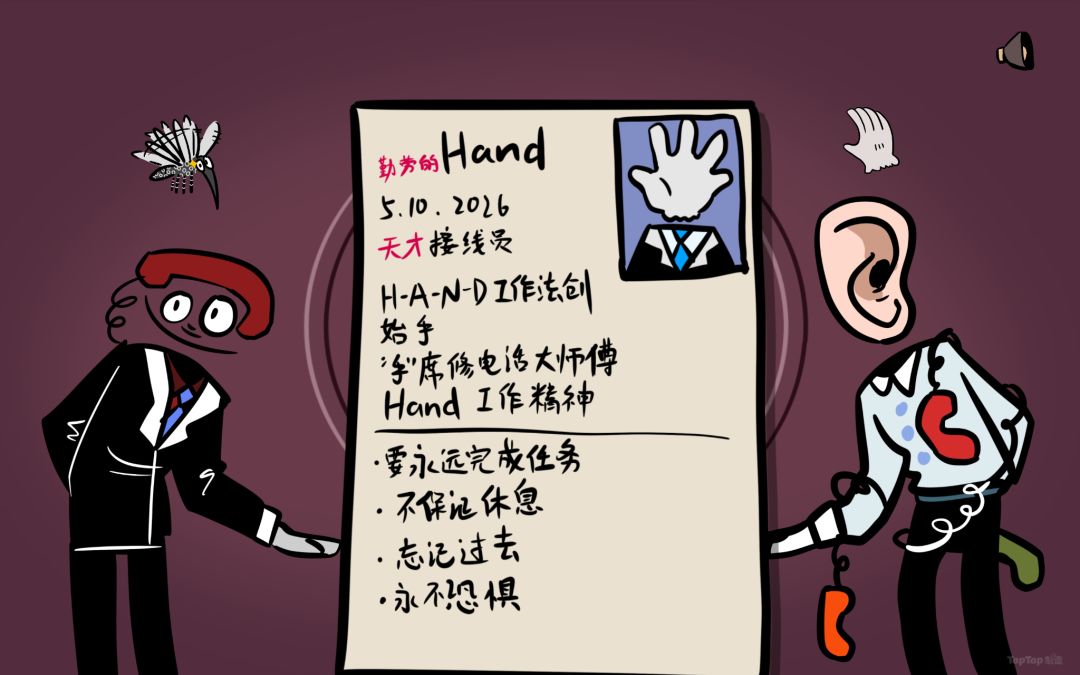 勤劳的Hand
5.10.2026
天才接线员
H-A-N-D工作法创
始手
首席修电话大师傅
Hand 工作精神
·要永远完成任务
·不保证休息
·忘记过去
·永不恐惧
TapTap制造